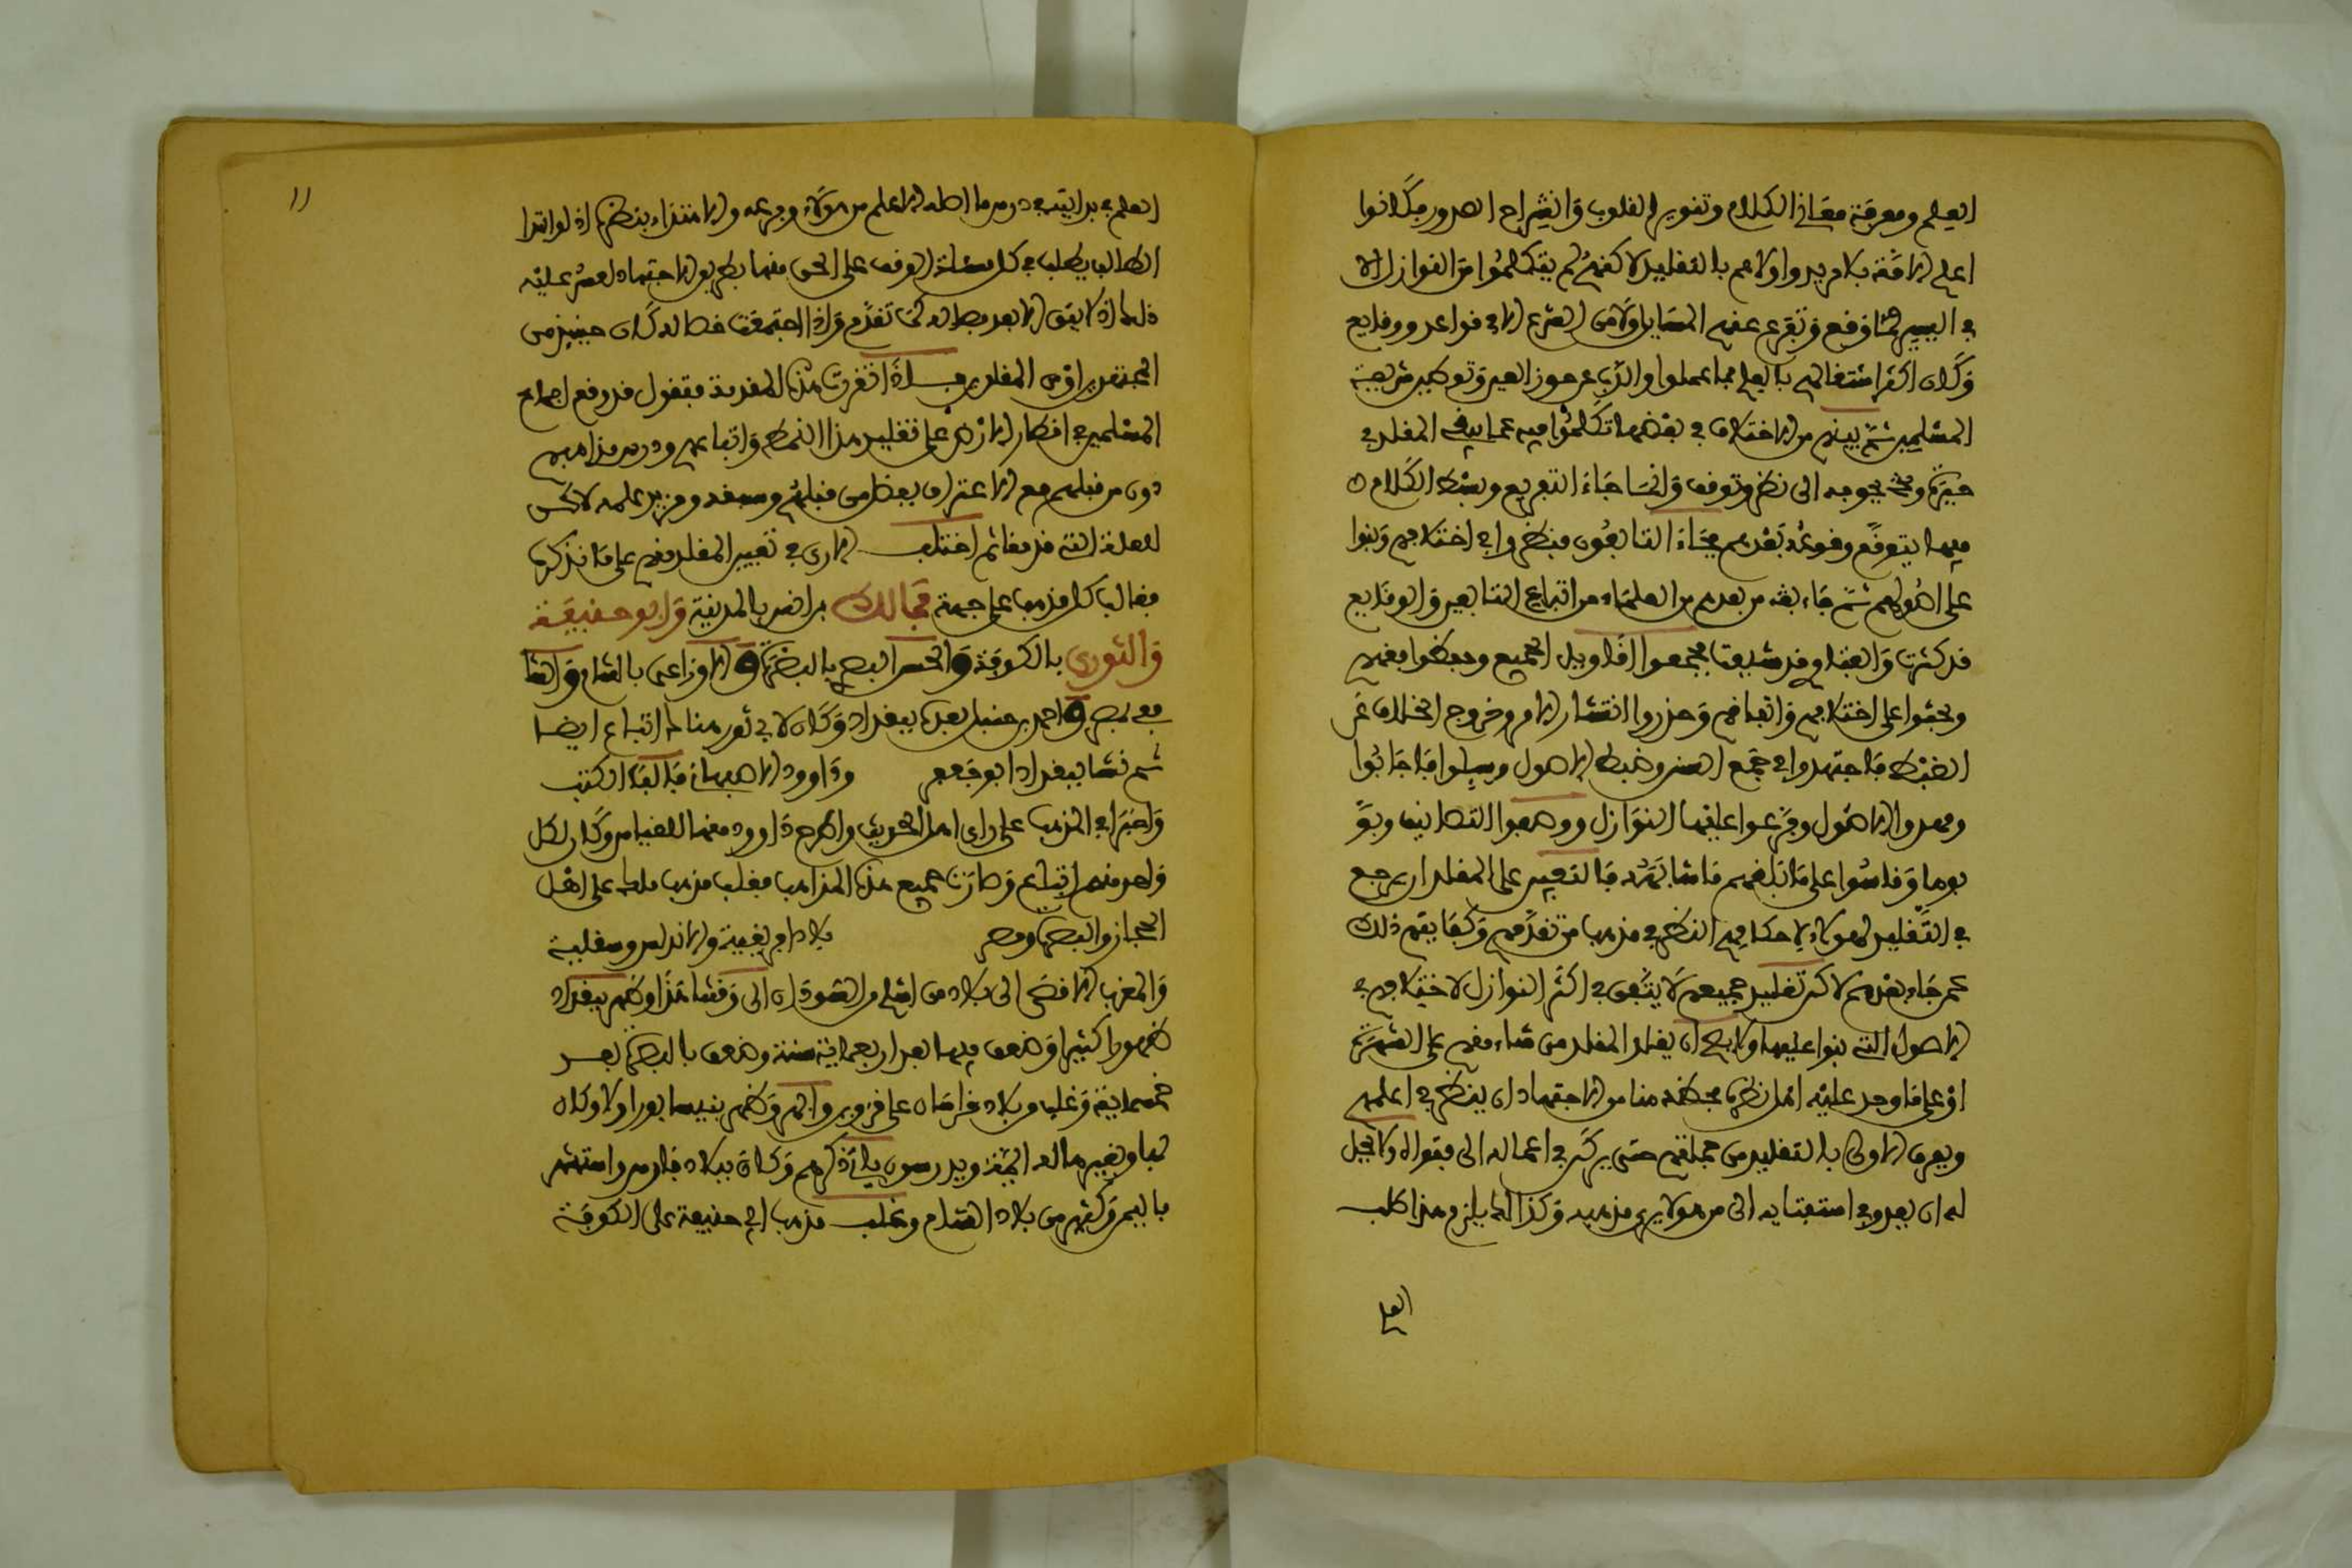 العلم ومعرفة معاني الكلام وتنوير القلوب وانشراح الصدور فكانوا
اعلم الامة بلا مرية واولاهم بالتقليد لاكنهم لم يتكلموا من النوازل الا
في اليسير مما وقع وتفرع عنهم المسايل ولا من الشرع الا في قواعد ووقايع
وكان اكثر اشتغالهم بالعلم بما عملوا والذب عن حوز الدين وتوطيد شريعة
المسلمين ثم بينهم من الاختلاف في بعض ما تكلموا فيه مما يبقى المقلد في
حيرة ويحوجه الى نظر وتوقف وانما جاء التفريع وبسط الكلام
فيما يتوقع وقوعه بعدهم فجاء التابعون فنظروا في اختلافهم وبنوا
على اصولهم ثم جاء من بعدهم من العلماء من اتباع التابعين والوقايع
قد كثرت والفتاوي قد تشعبت فجمعوا اقاويل الجميع وحفظوا فقههم
وبحثوا على اختلافهم واتفاقهم وحذروا انتشار الامر وخروج الخلاف عن
الضبط فاجتهدوا في جمع السنن وضبط الاصول وسيلوا فاجابوا
ومهدوا الاصول وفرعوا عليها النوازل ووضعوا التصانيف وبو
بوها وقاسوا على ما بلغهم ما شابهه فالتعين على المقلد ان يرجع
في التقليد لهؤلاء لاحكامهم النظر في مذهب من تقدمهم وكفايتهم ذلك
عمن جاء بعدهم لاكن تقليد جميعهم لا يتفق في اكثر النوازل لاختلافهم في
الاصول التي بنوا عليها ولا يصح ان يقلد المقلد من شاء منهم على الشهوة
او على ما وجد عليه اهل قطره فحظه هنا من الاجتهاد ان ينظر في اعلمهم
ويعرف الاولى بالتقليد من جملتهم حتى يركن في اعماله الى فتواه ولا يحل
له ان يعدو في استفتايه الى من لا يرى مذهبه وكذلك يلزم هذا طالب
العلم
١١
العلم في بدايته في درس ما اصله الاعلم من هؤلاء وفرعه والاهتداء بنظره اذ لو ابتدا
الطالب يطلب في كل مسئلة الوقوف على الحق منها بطريق الاجتهاد لعسر عليه
ذلك اذ لا يتفق الا بعد خصاله كما تقدم واذا اجتمعت خصاله كان حينيذ من
المجتهدين لا من المقلدين فاذا تقررت هذه المقدمة فنقول قد وقع اجماع
المسلمين في اقطار الارض على تقليد هذا النمط واتباعهم ودرس مذاهبهم
دون من قبلهم مع الاعتراف بفضل من قبلهم وسبقه ومزيد علمه لاكن
للعلة التي قدمناها ثم اختلف الاراء في تعيين المقلد منهم على ما نذكره
فغالب كل مذهب على جهة فمالك بن انس بالمدينة وابو حنيفة
والثوري بالكوفة والحسن البصري بالبصرة والاوزاعي بالشام والشا
فعي بمصر واحمد بن حنبل بعده ببغداد وكان لابي ثور هناك اتباع ايضا
ثم نشا ببغداد ابو جعفر وداوود الاصبهاني فالفا الكتب
واختارا في المذهب على راي اهل الحديث واطرح داوود منها القياس وكان لكل
واحد منهم اتباع وصارت جميع هذه المذاهب فغلب مذهب مالك على اهل
الحجاز والبصرة ومصر بلاد افريقية والاندلس وصقلية
والمغرب الاقصى الى بلاد من اسلم من السودان الى وقتنا هذا وظهر ببغداد
ظهورا كثيرا وضعف فيها بعد اربعماية سنة وضعف بالبصرة بعد
خمسماية وغلب من بلاد خراسان على قزوين وابهر وظهر بنيسابور اولا وكان
بها وبغيرها له ايمة ويدرسون ياتي ذكرهم وكان ببلاد فارس وانتشر
باليمن وكثير من بلاد الشام وغلب مذهب ابي حنيفة على الكوفة